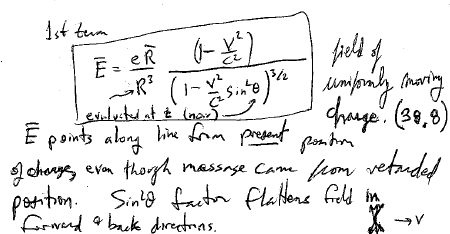 1st term
E̅ = eR̅/R³ (1 - V²/c²)/(1 - V²/c² Sin²θ)^3/2
field of
uniformly moving
charge. (38.8)
evaluated at t (now)
E̅ points along line from present position
of charge, even though message came from retarded
position. Sin²θ factor flattens field in
forward & back directions. → v